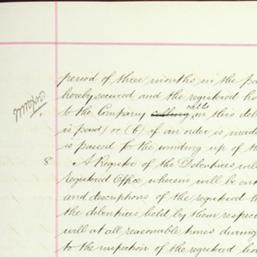 period of three months in the pa
hereby secured and the registered ho
calls
to the Company on this deb
is passed) or (6) if an order is made
is passed to the winding up of th
8 A Register of the Debentures wil
Registered Office wherein will be en
and descriptions of the registered h
the debentures held by them respec
will at all reasonable times during
to the inspection of the registered hol